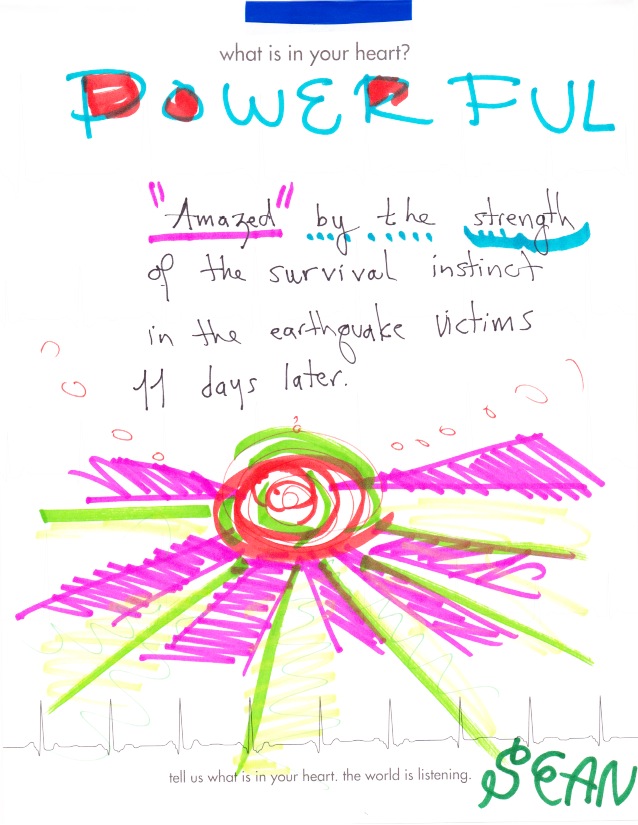 what is in your heart?
POWERFUL
"Amazed" by the strength
of the survival instinct
in the earthquake victims
11 days later.
tell us what is in your heart. the world is listening.
SEAN